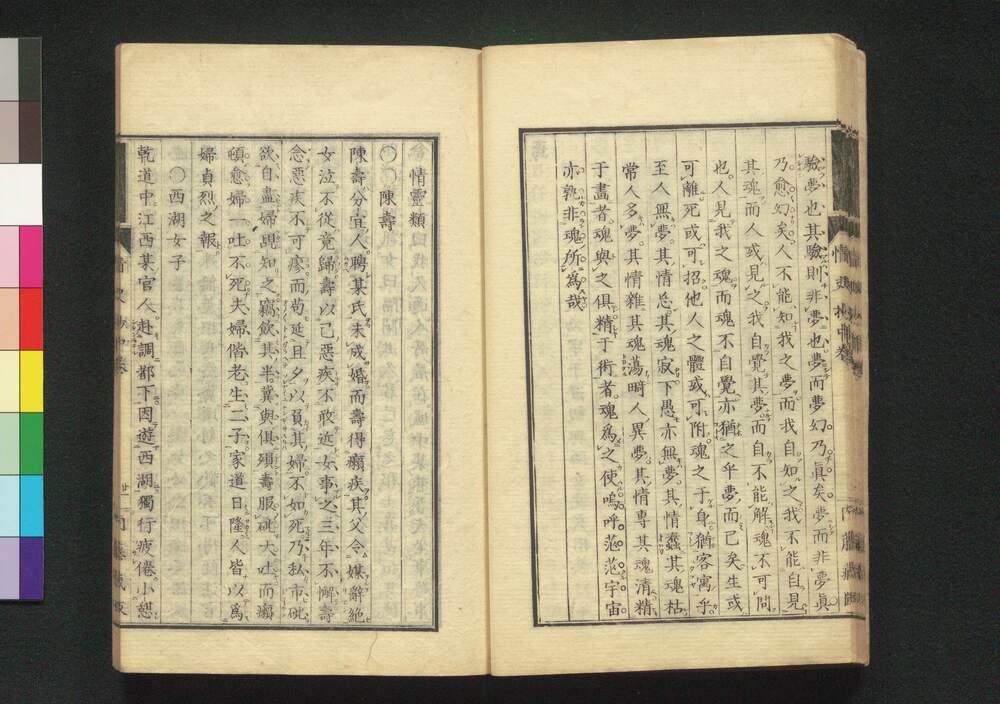 驗夢也其驗則非夢也夢而夢幻乃眞矣夢而非夢眞
乃愈幻矣人不能知我之夢而我自知之我不能自見
其魂而人或見之我自覺其夢而自不能解魂不可問
也人見我之魂而魂不自覺亦猶之乎夢而已矣生或
可離死或可招他人之體或可附魂之于身猶客寓乎
至人無夢其情忘其魂寂下愚亦無夢其情蠢其魂枯
常人多夢其情雜其魂蕩畸人異夢其情專其魂清精
于畫者魂與之俱精于術者魂爲之使嗚呼茫茫宇宙
亦孰非魂所爲哉
情靈類
〇陳壽
陳壽分宜人聘某氏未成婚而壽得癩疾其父令媒辭絕
女泣不從竟歸壽以己惡疾不敢近女事之三年不懈壽
念惡疾不可瘳而苟延旦夕以負其婦不如死乃私市砒
欲自盡婦覘知之竊飲其半冀與俱殞壽服砒大吐而癩
頓愈婦一吐不死夫婦偕老生二子家道日隆人皆以爲
婦貞烈之報
〇西湖女子
乾道中江西某官人赴調都下因遊西湖獨行疲倦小憩